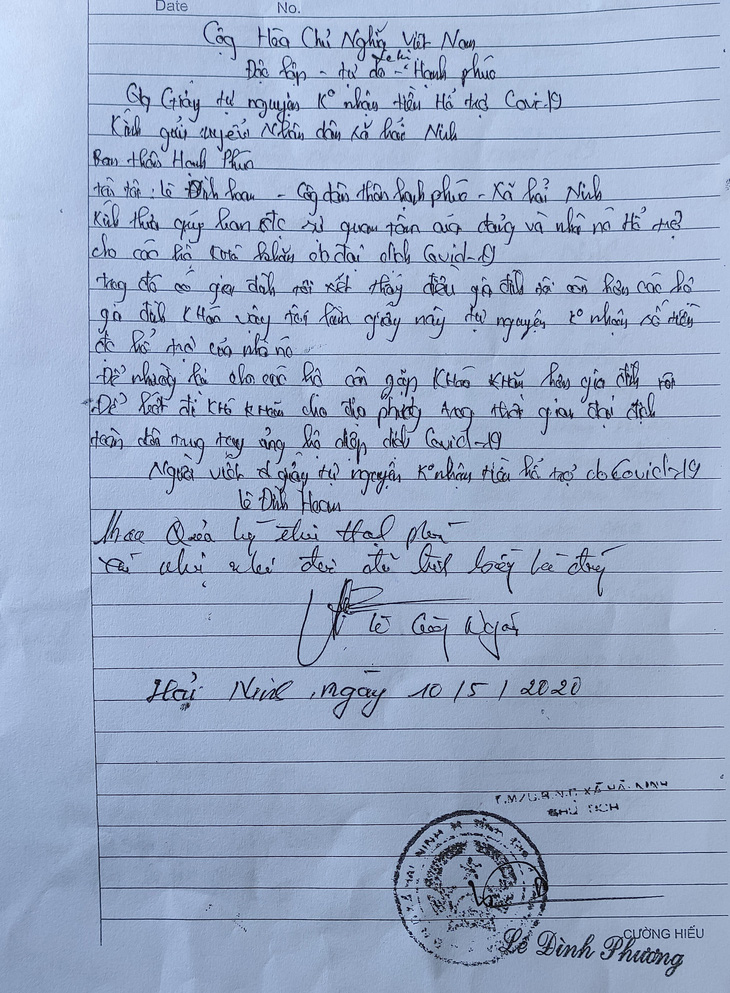 Date No.
Cộg Hòa Chủ Nghĩa Việt Nam
Độc lập - tự do - Hạnh phúc
Giấy tự nguyện Kº nhận tiền Hổ trợ Covi-19
Kính gửi Nhân dân xã hải Ninh
Ban thôn Hạnh Phúc
tên tôi: lê Đình hoan - Côg dân thôn hạnh phúc - Xã hải Ninh
Kính thưa qúy ban sự quan tâm của đảng và nhà nô Hổ trợ
cho các hộ Khó khăn do đại dịch Covid-19
trong đó có gia đình tôi xét thấy điều gia đình tôi còn hơn các hộ
gia đình Khác vậy tôi làm giấy này tự nguyện Kº nhận số tiền
đc hổ trợ của nhà nô
Để nhường lại cho các hộ còn gặp Khó Khăn hơn gia đình tôi
Để bớt đi Khó Khăn cho địa phương trong thời gian đại dịch
toàn dân trung tay ủng hộ dịch Covid-19
Người viết giấy tự nguyện Kº nhận tiền hổ trợ do Covid-19
lê Đình Hoan
Quản lý thôn
là đúng
lê Công Ngân
Hải Ninh, ngày 10/5/2020
T.M/U.B.N.D XÃ HẢI NINH
CHỦ TỊCH
CƯỜNG HIẾU
Lê Đình Phương